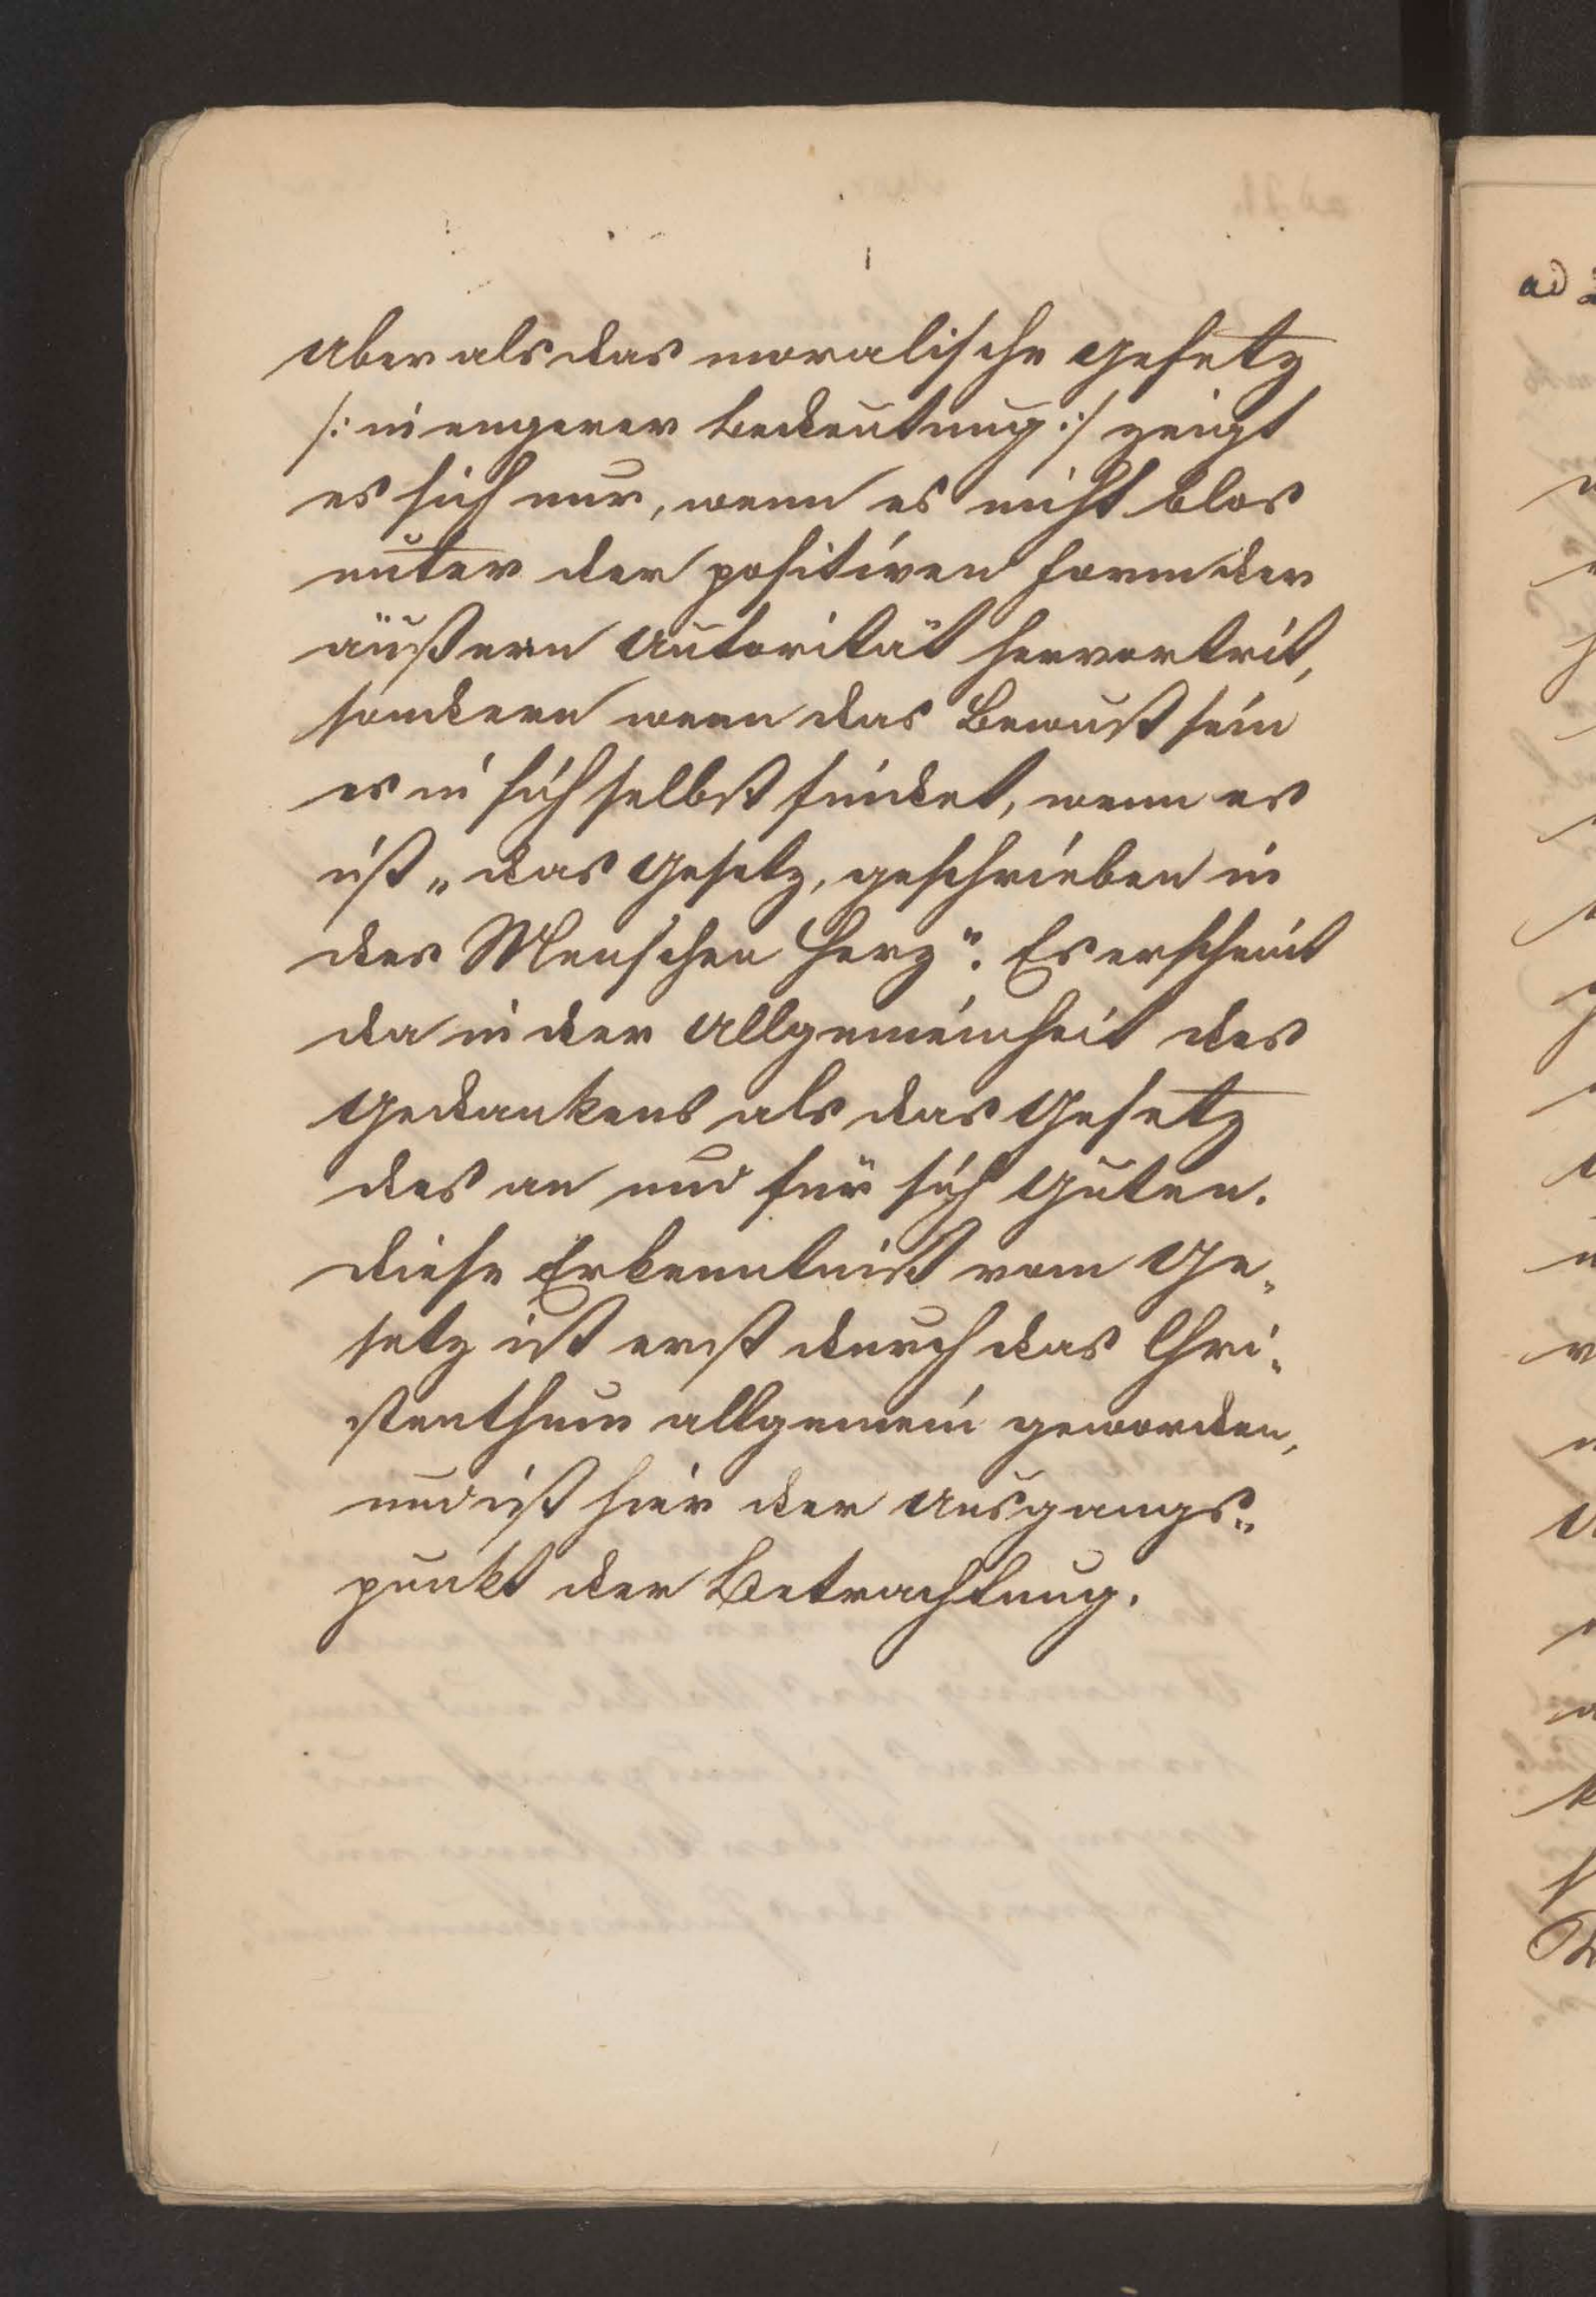 Aber als das moralische Gesetz
/: in engerer Bedeutung :/ zeigt
es sich nur, wenn es nicht blos
unter der positiven Form der
äußern Autorität hervortrit,
sondern wenn das Bewußtsein
es in sich selbst findet, wenn es
ist „das Gesetz, geschrieben in
des Menschen Herz“. Es erscheint
da in der Allgemeinheit des
Gedankens als das Gesetz
des an und für sich Guten.
Diese Erkenntniß vom Ge-
setz ist erst durch das Chri-
stenthum allgemein geworden,
und ist hier der Ausgangs-
punkt der Betrachtung.
ad